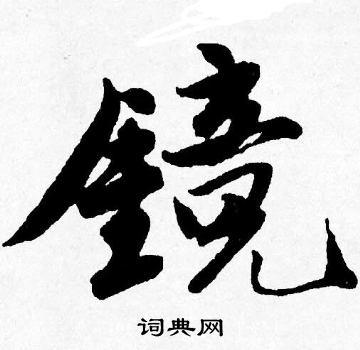 鏡
词典网